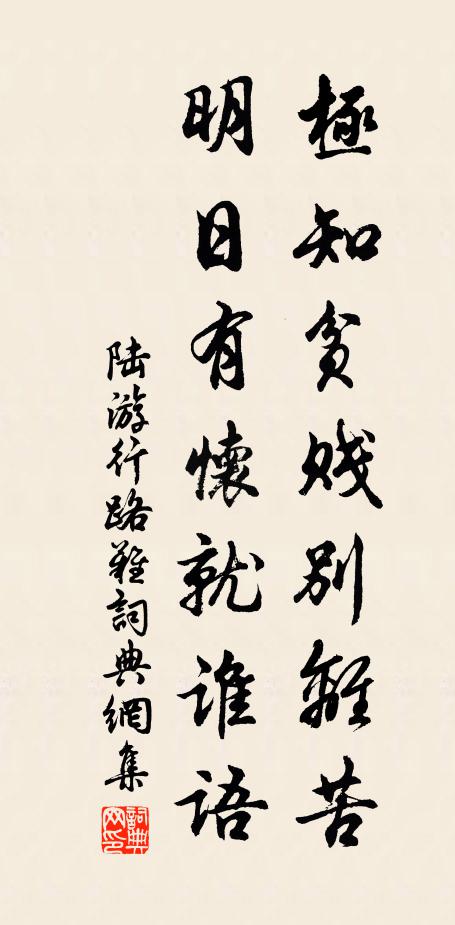 極知貧賤別離苦
明日有懷就誰語
陆游行路難詞典網集
詞典网印